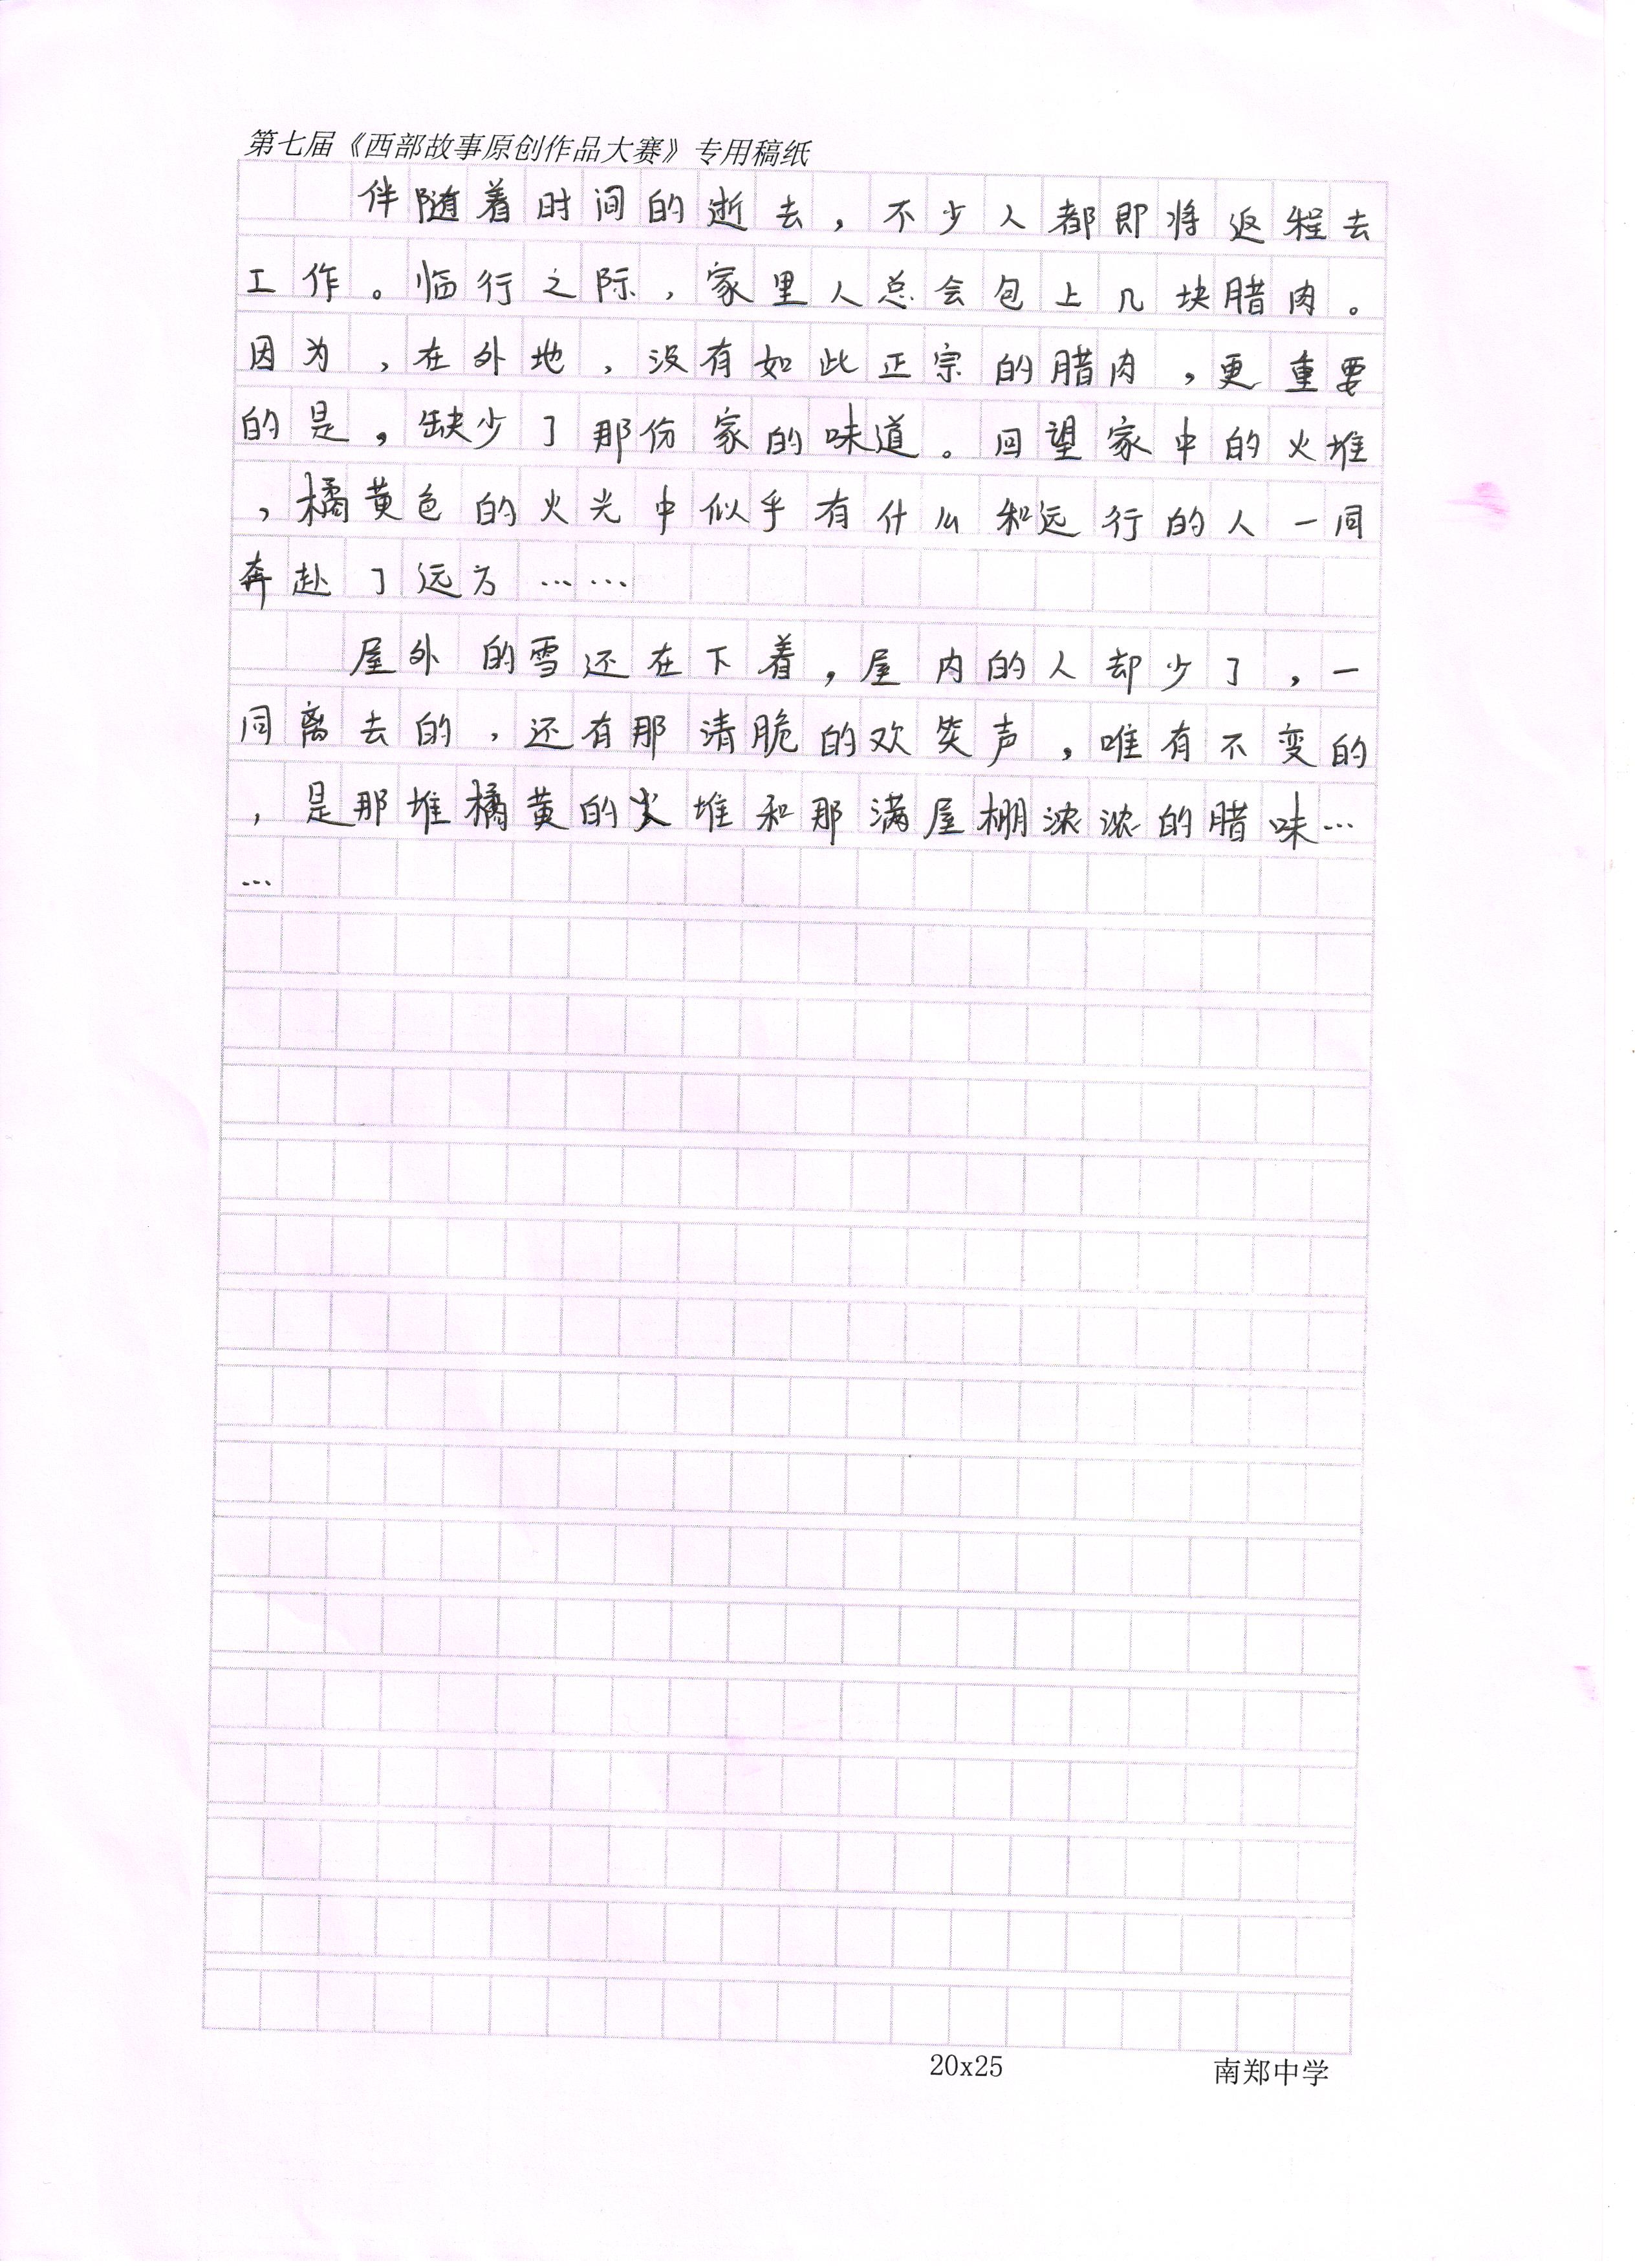 第七届《西部故事原创作品大赛》专用稿纸
伴随着时间的逝去，不少人都即将返程去
工作。临行之际，家里人总会包上几块腊肉。
因为，在外地，没有如此正宗的腊肉，更重要
的是，缺少了那份家的味道。回望家中的火堆
，橘黄色的火光中似乎有什么和远行的人一同
奔赴了远方……
屋外的雪还在下着，屋内的人却少了，一
同离去的，还有那清脆的欢笑声，唯有不变的
，是那堆橘黄的火堆和那满屋棚浓浓的腊味…
…
20x25 南郑中学